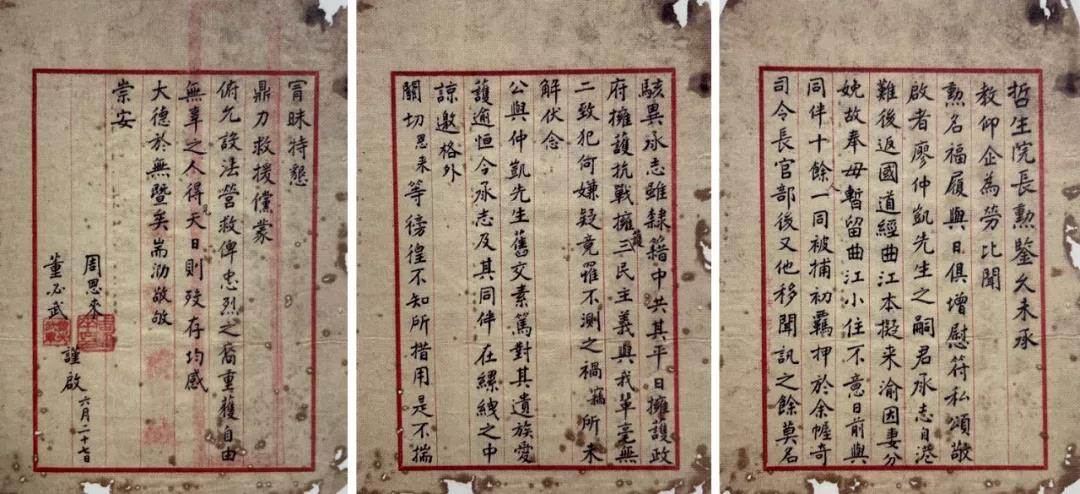 哲生院長勳鑒久未承
教仰企為勞比聞
勳名福履與日俱增慰符私頌敬
啟者廖仲凱先生之嗣君承志自港
難後返國道經曲江本擬来渝因妻分
娩故奉母暫留曲江小住不意日前與
同伴十餘人一同被捕初羈押於余幄奇
司令長官部後又他移聞訊之餘莫名
駭異承志雖隸籍中共其平日擁護政
府擁護抗戰擁護三民主義與我輩毫無
二致犯何嫌疑竟罹不測之禍竊所未
解伏念
公與仲凱先生舊交素篤對其遺族愛
護逾恒今承志及其同伴在縲絏之中
諒邀格外
關切恩来等徬徨不知所措用是不揣
冒昧特懇
鼎力救援儻蒙
俯允設法營救俾忠烈之裔重獲自由
無辜之人得見天日則歿存均感
大德於無暨矣耑泐敬敂
崇安
周恩来
董必武
謹啟
六月二十七日